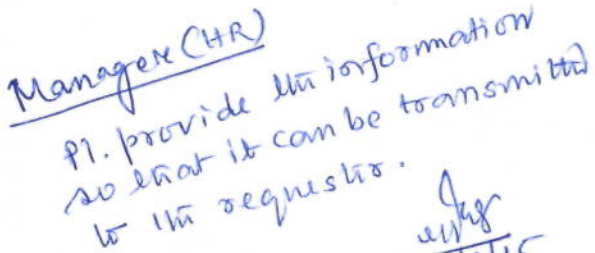 Manager (HR)
Pl. provide the information
so that it can be transmitted
to the requester.